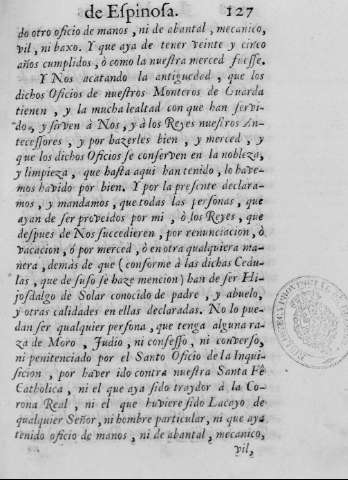 de Espinosa. 127
do otro oficio de manos, ni de abantal, mecanico,
vil, ni baxo. Y que aya de tener veinte y cinco
años cumplidos, ò como la nuestra merced fuesse.
Y Nos acatando la antiguedad, que los
dichos Oficios de nuestros Monteros de Guarda
tienen, y la mucha lealtad con que han servi-
do, y sirven à Nos, y à los Reyes nuestros An-
tecessores, y por hazerles bien, y merced, y
que los dichos Oficios se conserven en la nobleza,
y limpieza, que hasta aqui han tenido, lo have-
mos havido por bien. Y por la presente declara-
mos, y mandamos, que todas las personas, que
ayan de ser proveidos por mi, ò los Reyes, que
despues de Nos succedieren, por renunciacion, ò
vacacion, ò por merced, ò en otra qualquiera ma-
nera, demàs de que (conforme à las dichas Cedu-
las, que de suso se haze mencion) han de ser Hi-
josdalgo de Solar conocido de padre, y abuelo,
y otras calidades en ellas declaradas. No lo pue-
dan ser qualquier persona, que tenga alguna ra-
za de Moro, Judio, ni confesso, ni converso,
ni penitenciado por el Santo Oficio de la Inqui-
sicion, por haver ido contra nuestra Santa Fè
Catholica, ni el que aya sido traydor à la Co-
rona Real, ni el que huviere sido Lacayo de
qualquier Señor, ni hombre particular, ni que aya
tenido oficio de manos, ni de abantal, mecanico,
vil,